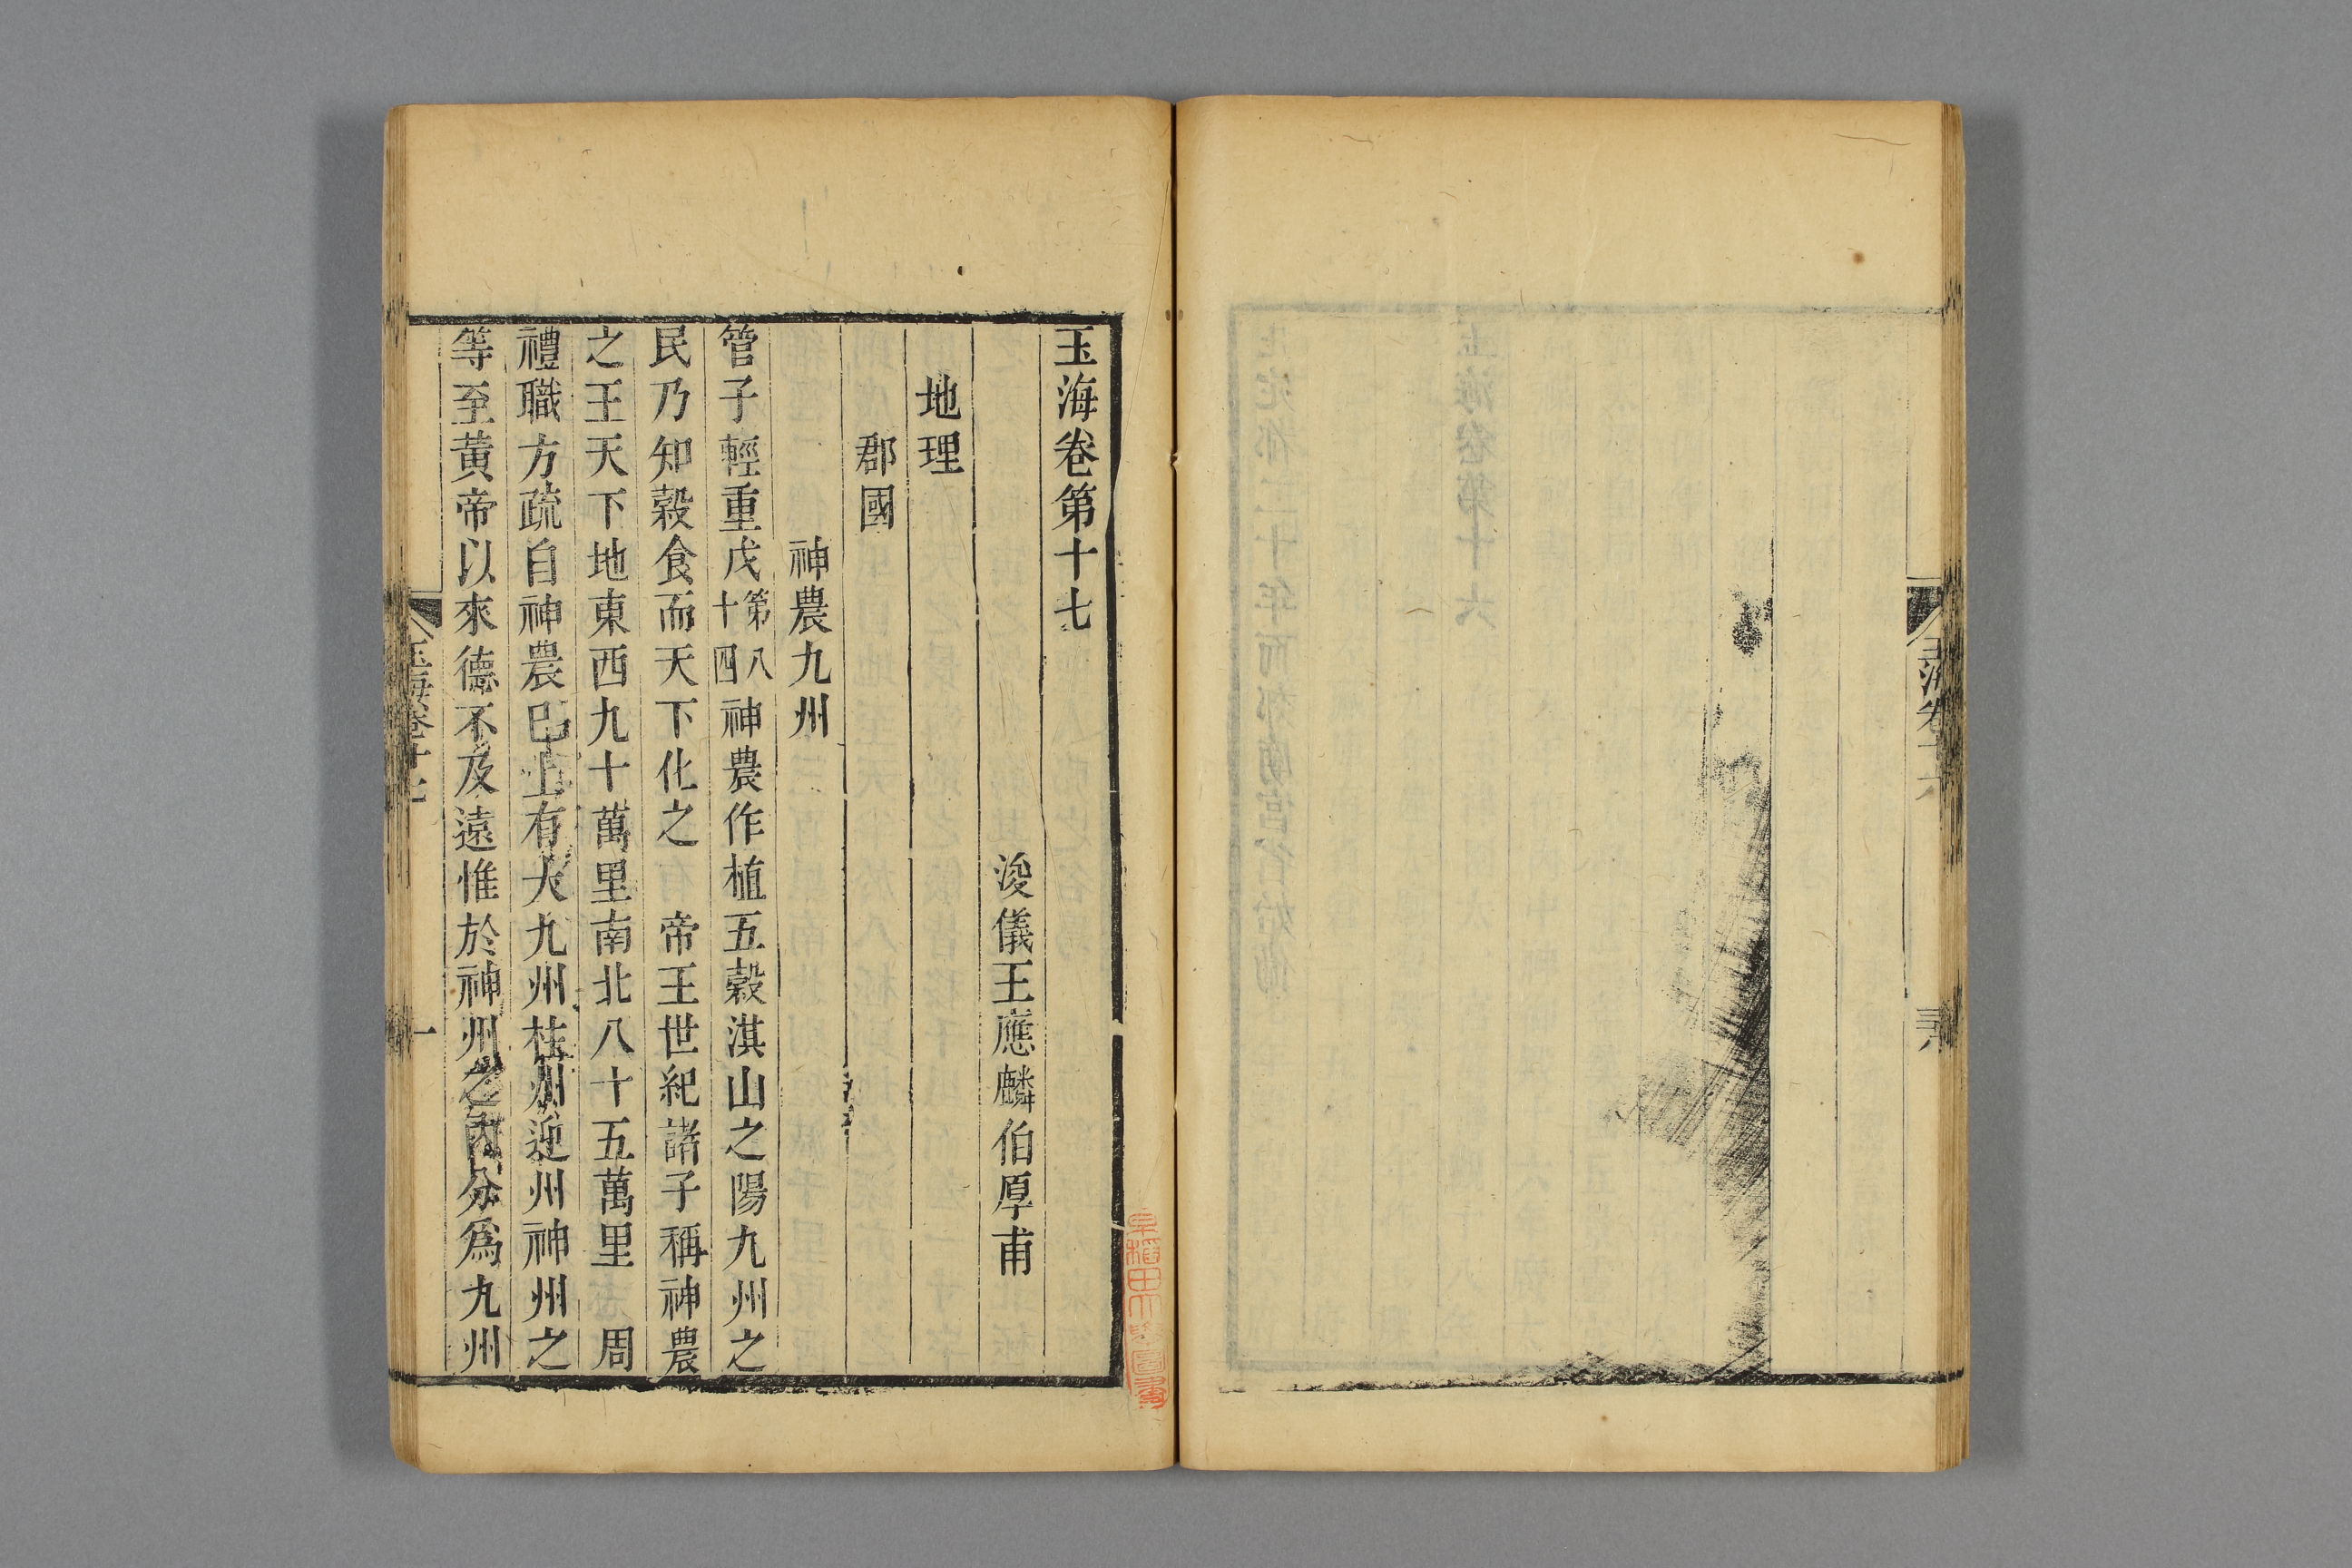 玉海卷第十七
浚儀王應麟伯厚甫
地理
郡國
神農九州
管子輕重戊第八十四神農作植五穀淇山之陽九州之
民乃知穀食而天下化之　帝王世紀諸子稱神農
之王天下地東西九十萬里南北八十五萬里　周
禮職方疏自神農已上有大九州桂州迎州神州之
等至黃帝以來德不及遠惟於神州之內分為九州
玉海卷十七
一